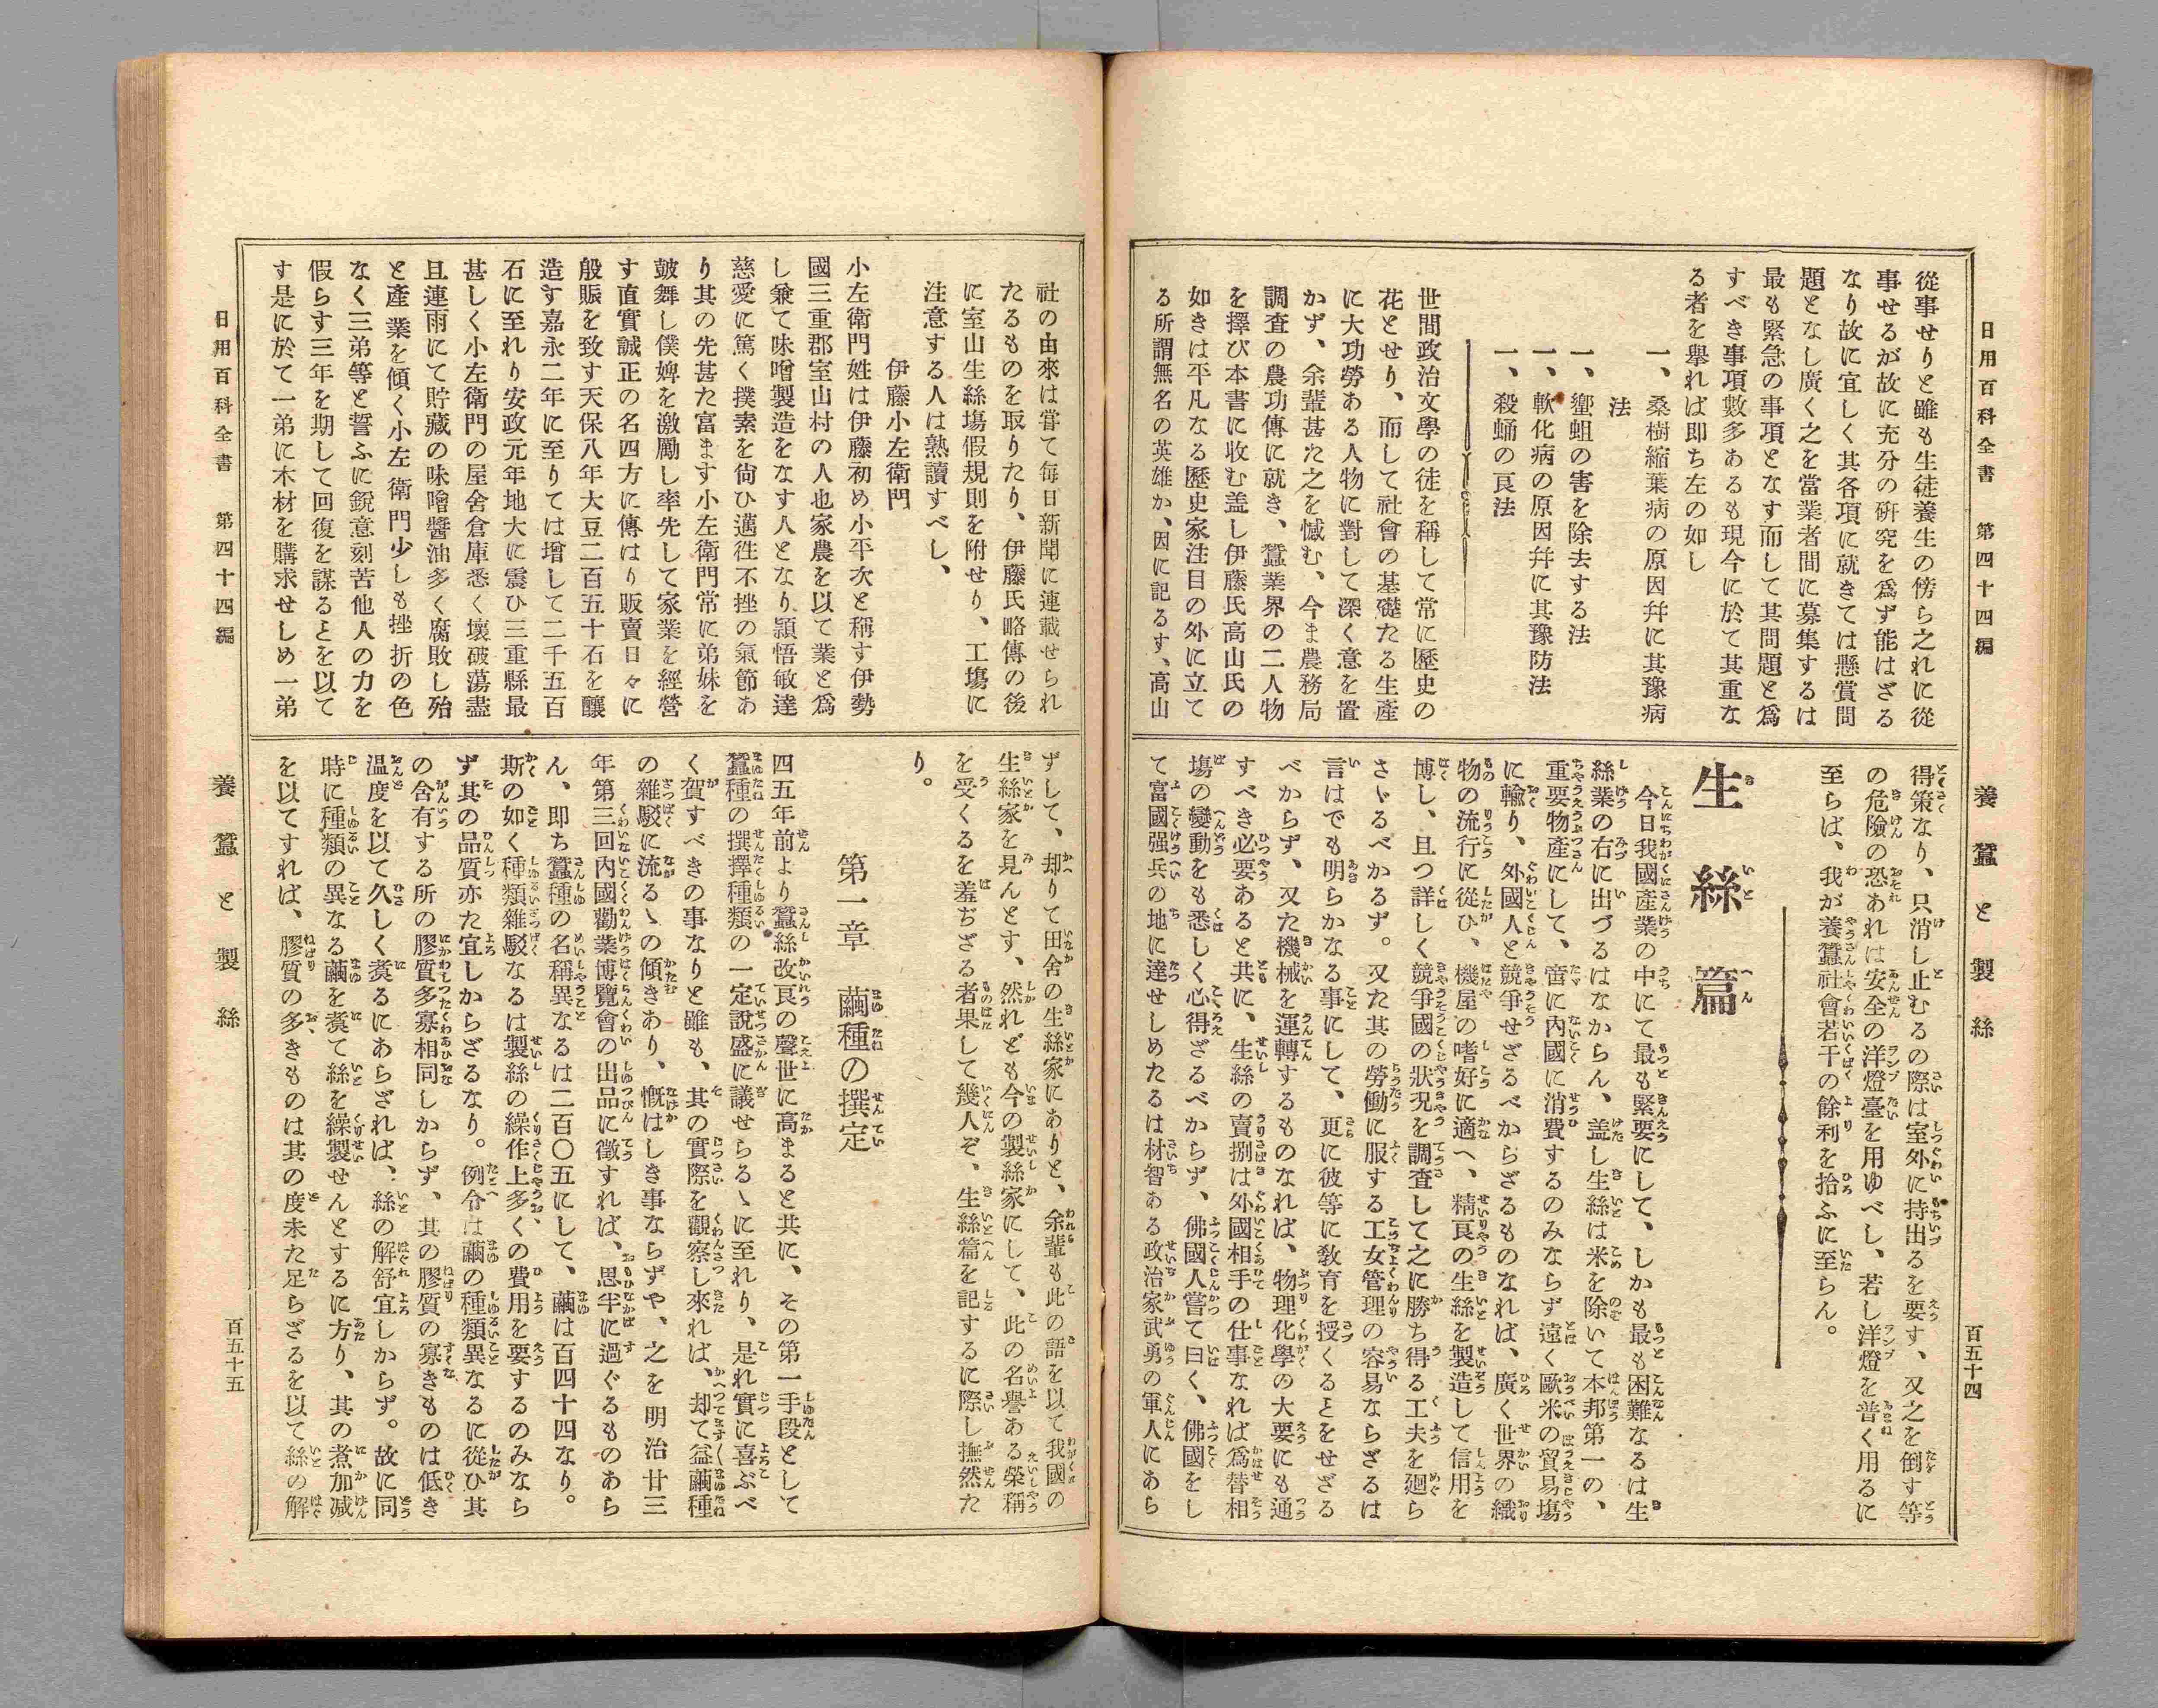 日用百科全書　第四十四編
養蠶と製絲
百五十四
從事せりと雖も生徒養生の傍ら之れに從
事せるが故に充分の硏究を爲ず能はざる
なり故に宜しく其各項に就きては懸賞問
題となし廣く之を當業者間に募集するは
最も緊急の事項となす而して其問題と爲
すべき事項數多あるも現今に於て其重な
る者を擧れば即ち左の如し
一、桑樹縮葉病の原因幷に其豫病
法
一、蠁蛆の害を除去する法
一、軟化病の原因幷に其豫防法
一、殺蛹の良法
世間政治文學の徒を稱して常に歷史の
花とせり、而して社會の基礎たる生產
に大功勞ある人物に對して深く意を置
かず、余輩甚た之を憾む、今ま農務局
調査の農功傳に就き、蠶業界の二人物
を擇び本書に收む盖し伊藤氏高山氏の
如きは平凡なる歷史家注目の外に立て
る所謂無名の英雄か、因に記るす、高山
得策なり、只消し止むるの際は室外に持出るを要す、又之を倒す等
の危險の恐あれは安全の洋燈臺を用ゆべし、若し洋燈を普く用るに
至らば、我が養蠶社會若干の餘利を拾ふに至らん。
生絲篇
今日我國產業の中にて最も緊要にして、しかも最も困難なるは生
絲業の右に出づるはなからん、盖し生絲は米を除いて本邦第一の、
重要物產にして、啻に內國に消費するのみならず遠く歐米の貿易塲
に輸り、外國人と競爭せざるべからざるものなれば、廣く世界の織
物の流行に從ひ、機屋の嗜好に適へ、精良の生絲を製造して信用を
博し、且つ詳しく競爭國の狀況を調査して之に勝ち得る工夫を廻ら
さゝるべかるず。又た其の勞働に服する工女管理の容易ならざるは
言はでも明らかなる事にして、更に彼等に敎育を授くるとをせざる
べからず、又た機械を運轉するものなれば、物理化學の大要にも通
すべき必要あると共に、生絲の賣捌は外國相手の仕事なれば爲替相
塲の變動をも悉しく心得ざるべからず、佛國人嘗て曰く、佛國をし
て富國强兵の地に達せしめたるは材智ある政治家武勇の軍人にあら
社の由來は嘗て每日新聞に連載せられ
たるものを取りたり、伊藤氏略傳の後
に室山生絲塲假規則を附せり、工塲に
注意する人は熟讀すべし、
伊藤小左衛門
小左衛門姓は伊藤初め小平次と稱す伊勢
國三重郡室山村の人也家農を以て業と爲
し兼て味噌製造をなす人となり頴悟敏達
慈愛に篤く撲素を尙ひ邁徃不挫の氣節あ
り其の先甚た富ます小左衛門常に弟妹を
皷舞し僕婢を激勵し率先して家業を經營
す直實誠正の名四方に傳はり販賣日々に
般賑を致す天保八年大豆二百五十石を釀
造す嘉永二年に至りては增して二千五百
石に至れり安政元年地大に震ひ三重縣最
甚しく小左衛門の屋舍倉庫悉く壞破蕩盡
且連雨にて貯藏の味噌醬油多く腐敗し殆
と產業を傾く小左衛門少しも挫折の色
なく三弟等と誓ふに銳意刻苦他人の力を
假らす三年を期して回復を謀るとを以て
す是に於て一弟に木材を購求せしめ一弟
ずして、却りて田舍の生絲家にありと、余輩も此の語を以て我國の
生絲家を見んとす、然れども今の製絲家にして、此の名譽ある榮稱
を受くるを羞ぢざる者果して幾人ぞ、生絲篇を記するに際し撫然た
り。
第一章　繭種の撰定
四五年前より蠶絲改良の聲世に高まると共に、その第一手段として
蠶種の撰擇種類の一定說盛に議せらるゝに至れり、是れ實に喜ぶべ
く賀すべきの事なりと雖も、其の實際を觀察し來れば、却て益〱繭種
の雜駁に流るゝの傾きあり、慨はしき事ならずや、之を明治廿三
年第三回內國勸業博覽會の出品に徵すれば、思半に過ぐるものあら
ん、即ち蠶種の名稱異なるは二百〇五にして、繭は百四十四なり。
斯の如く種類雜駁なるは製絲の繰作上多くの費用を要するのみなら
ず其の品質亦た宜しからざるなり。例令は繭の種類異なるに從ひ其
の含有する所の膠質多寡相同しからず、其の膠質の寡きものは低き
温度を以て久しく煑るにあらざれば、絲の解舒宜しからず。故に同
時に種類の異なる繭を煑て絲を繰製せんとするに方り、其の煮加减
を以てすれば、膠質の多きものは其の度未た足らざるを以て絲の解
日用百科全書　第四十四編
養蠶と製絲
百五十五